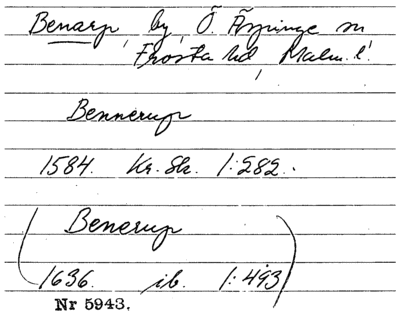 Benarp, by, Ö. Äspinge sn
Frosta hd, Malm. l.
Bennerup
1584. Kr. Sk. 1:282.
(Benerup
1636. ib. 1:493)
Nr 5943.